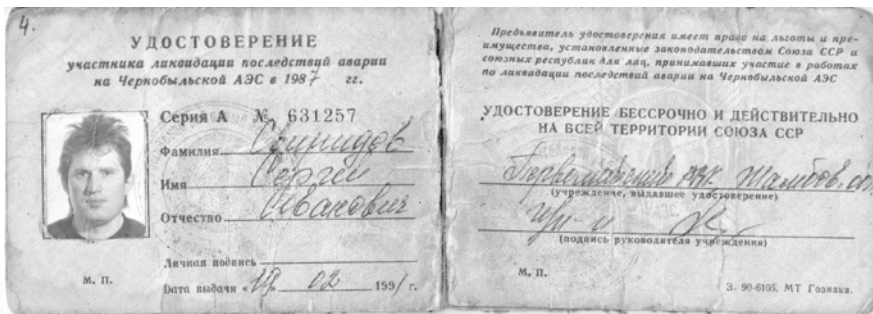 4.
УДОСТОВЕРЕНИЕ
участника ликвидации последствий аварии
на Чернобыльской АЭС в 1987 гг.
Серия А № 631257
Фамилия
Имя Сергей
Отчество Иванович
Личная подпись
М. П.
Дата выдачи « 19 » 02 1991 г.
Предъявитель удостоверения имеет право на льготы и пре-
имущества, установленные законодательством Союза ССР и
союзных республик для лиц, принимавших участие в работах
по ликвидации последствий аварии на Чернобыльской АЭС
УДОСТОВЕРЕНИЕ БЕССРОЧНО И ДЕЙСТВИТЕЛЬНО
НА ВСЕЙ ТЕРРИТОРИИ СОЮЗА ССР
(учреждение, выдавшее удостоверение)
(подпись руководителя учреждения)
М. П.
З. 90-6105. МТ Гознака.